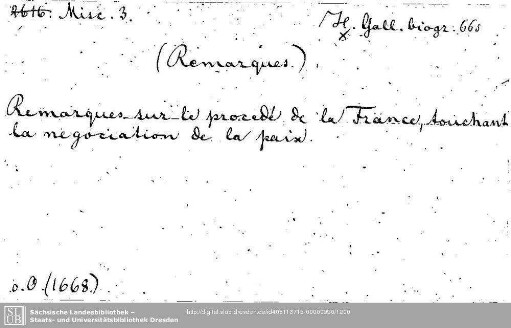 2616. Misc. 3.
H. Gall. biogr. 665
x
(Remarques.)
Remarques sur le procedé de la France, touchant
la negociation de la paix.
o.O. (1668.)
SLUB
Sächsische Landesbibliothek –
Staats- und Universitätsbibliothek Dresden